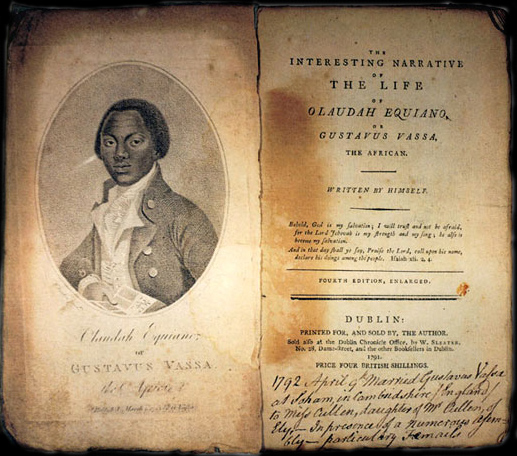 Olaudah Equiano;
or
GUSTAVUS VASSA,
the African
THE
INTERESTING NARRATIVE
OF
THE LIFE
OF
OLAUDAH EQUIANO,
OR
GUSTAVUS VASSA,
THE AFRICAN.
WRITTEN BY HIMSELF.
Behold, God is my salvation; I will trust and not be afraid,
for the Lord Jehovah is my strength and my song; he also is
become my salvation.
And in that day shall ye say, Praise the Lord, call upon his name,
declare his doings among the people. Isaiah xii. 2, 4.
FOURTH EDITION, ENLARGED.
DUBLIN:
PRINTED FOR, AND SOLD BY, THE AUTHOR.
Sold also at the Dublin Chronicle Office, by W. SLEATER,
No. 28, Dame-Street, and the other Booksellers in Dublin.
1791.
PRICE FOUR BRITISH SHILLINGS.
1792 April 9th Married Gustavus Vassa
at Soham, in Cambridshire / England /
to Miss Cullen, daughter of Mr Cullen, of
Ely,— In presence of a numerous assem-
bly— particulary Femaels